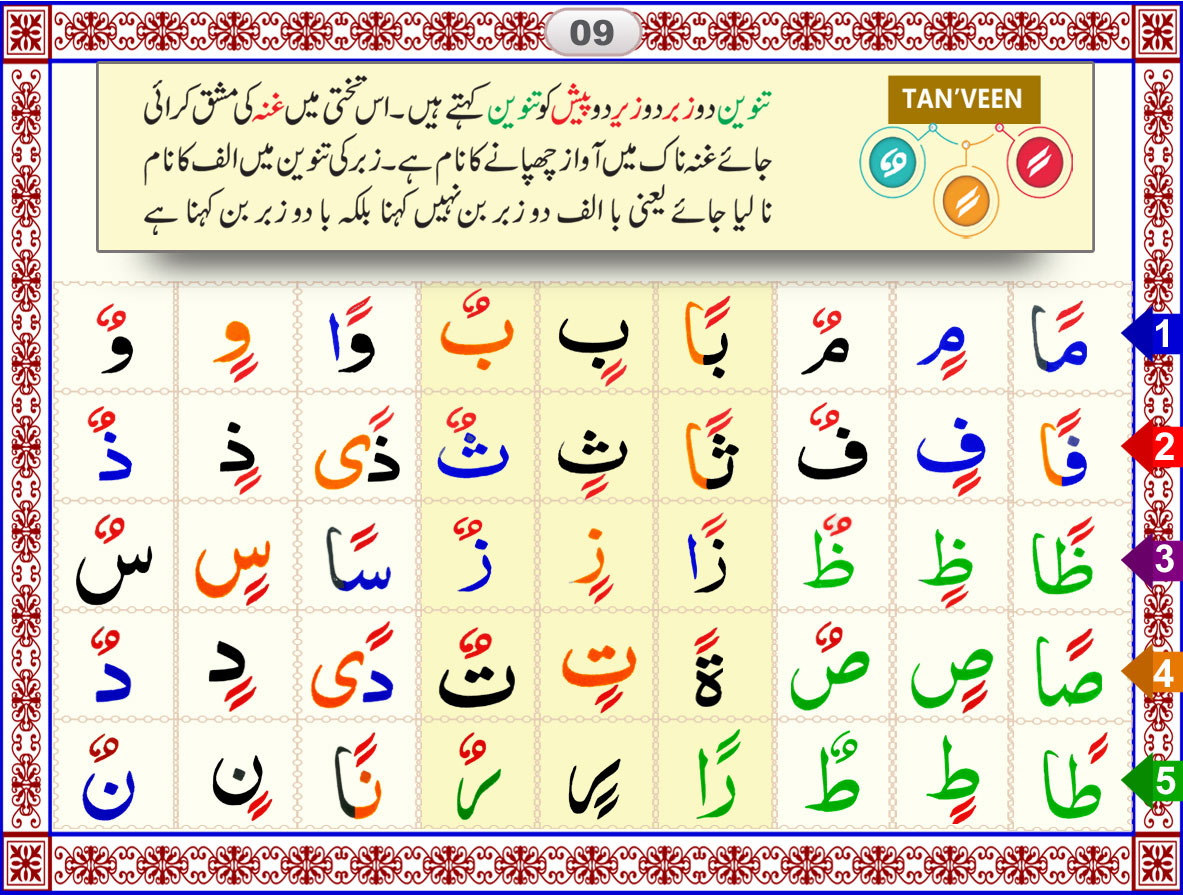 09
TAN’VEEN
تنوین دو زبر دو زیر دو پیش کو تنوین کہتے ہیں۔ اس تختی میں غنہ کی مشق کرائی
جائے غنہ ناک میں آواز چھپانے کا نام ہے۔ زبر کی تنوین میں الف کا نام
نا لیا جائے یعنی با الف دو زبر بن نہیں کہنا بلکہ با دو زبر بن کہنا ہے
1 مًا مٍ مٌ بًا بٍ بٌ وًا وٍ وٌ
2 فًا فٍ فٌ ثًا ثٍ ثٌ ذًی ذٍ ذٌ
3 ظًا ظٍ ظٌ زًا زٍ زٌ سًا سٍ سٌ
4 صًا صٍ صٌ ةً تٍ تٌ دًی دٍ دٌ
5 طًا طٍ طٌ رًا رٍ رٌ نًا نٍ نٌ